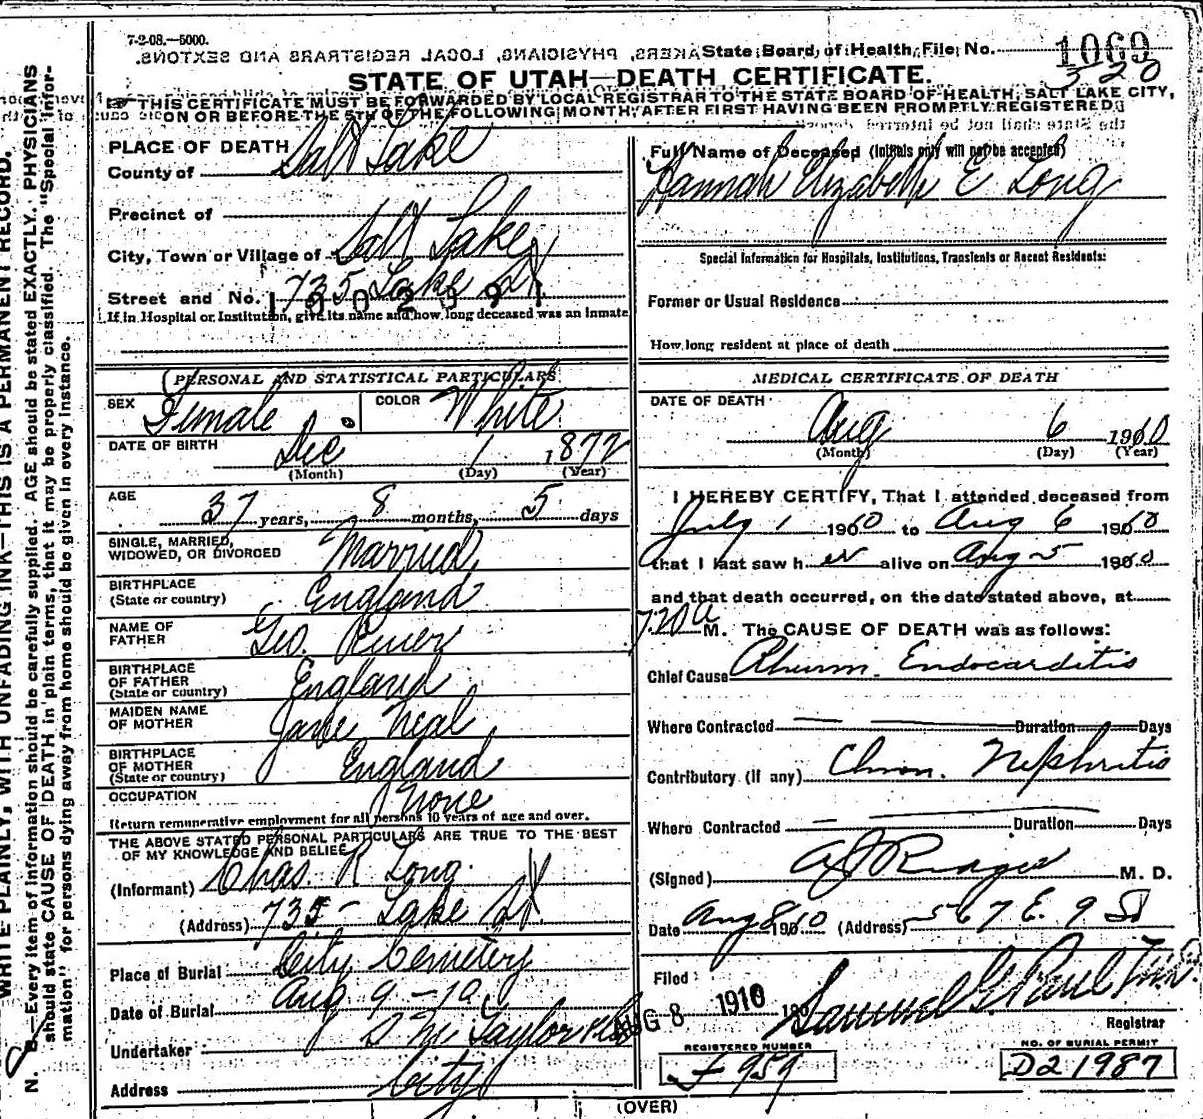 7-2-08.—5000.
State Board of Health, File No. 1069
320
STATE OF UTAH—DEATH CERTIFICATE.
THIS CERTIFICATE MUST BE FORWARDED BY LOCAL REGISTRAR TO THE STATE BOARD OF HEALTH, SALT LAKE CITY,
ON OR BEFORE THE 5TH OF THE FOLLOWING MONTH, AFTER FIRST HAVING BEEN PROMPTLY REGISTERED.
PLACE OF DEATH
County of Salt Lake
Precinct of
City, Town or Village of Salt Lake
Street and No. 735 Lake St
If in Hospital or Institution, give its name and how long deceased was an inmate
Full Name of Deceased (Initials only will not be accepted)
Hannah Elizabeth E Long
Special Information for Hospitals, Institutions, Transients or Recent Residents:
Former or Usual Residence
How long resident at place of death
PERSONAL AND STATISTICAL PARTICULARS
SEX Female COLOR White
DATE OF BIRTH Dec 1 1872
(Month) (Day) (Year)
AGE 37 years, 8 months, 5 days
SINGLE, MARRIED,
WIDOWED, OR DIVORCED Married
BIRTHPLACE
(State or country) England
NAME OF
FATHER Geo.
BIRTHPLACE
OF FATHER
(State or country) England
MAIDEN NAME
OF MOTHER Jane Neal
BIRTHPLACE
OF MOTHER
(State or country) England
OCCUPATION None
Return remunerative employment for all persons 10 years of age and over.
THE ABOVE STATED PERSONAL PARTICULARS ARE TRUE TO THE BEST
OF MY KNOWLEDGE AND BELIEF
(Informant) Chas. R Long.
(Address) 735- Lake St
Place of Burial City Cemetery
Date of Burial Aug 9 - 10
Undertaker S M Taylor
Address City
MEDICAL CERTIFICATE OF DEATH
DATE OF DEATH
Aug 6 1910
(Month) (Day) (Year)
I HEREBY CERTIFY, That I attended deceased from
July 1 1910 to Aug 6 1910
that I last saw her alive on Aug 5 1910
and that death occurred, on the date stated above, at
7.20 a M. The CAUSE OF DEATH was as follows:
Chief Cause Rheum. Endocarditis
Where Contracted Duration Days
Contributory (if any) Chron. Nephritis
Where Contracted Duration Days
(Signed) M. D.
Date Aug 8 1910 (Address) 567 E. 9 So
Filed AUG 8 1910 190 Samuel G. Paul M.D.
Registrar
REGISTERED NUMBER
F 959
NO. OF BURIAL PERMIT
D21987
(OVER)
WRITE PLAINLY, WITH UNFADING INK—THIS IS A PERMANENT RECORD.
N. B.—Every item of information should be carefully supplied. AGE should be stated EXACTLY. PHYSICIANS
should state CAUSE OF DEATH in plain terms, that it may be properly classified. The "Special Infor-
mation" for persons dying away from home should be given in every instance.